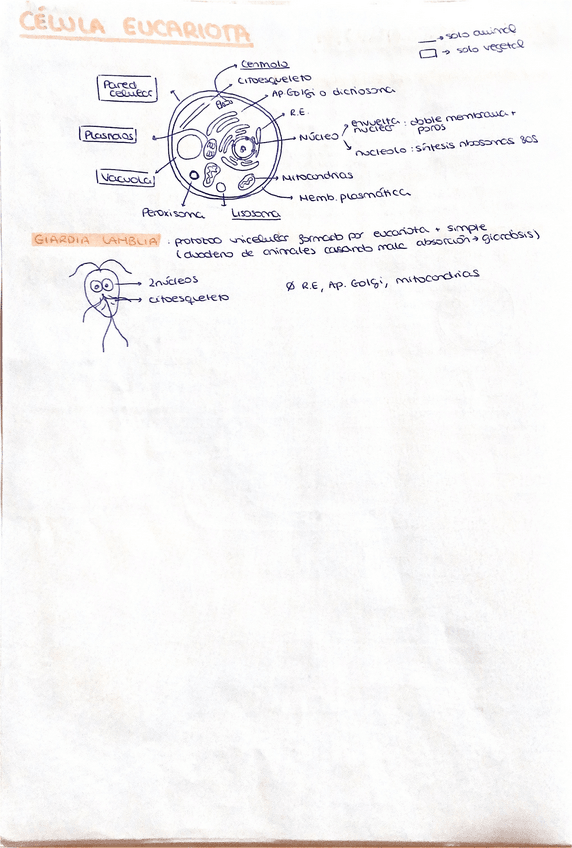 CÉLULA EUCARIOTA
→ solo animal
→ solo vegetal
Centriolo
citoesqueleto
Pared
celular
Ap. Golgi o dictiosoma
R.E.
Plastos
Núcleo
envuelta
nuclear : doble membrana +
poros
nucleolo : síntesis ribosomas 80S
Vacuola
Mitocondrias
Memb. plasmática
Peroxisoma
Lisosoma
GIARDIA LAMBLIA : protozoo unicelular formado por eucariota + simple
(duodeno de animales causando mala absorción → giardosis)
2 núcleos
citoesqueleto
Ø R.E, Ap. Golgi, mitocondrias